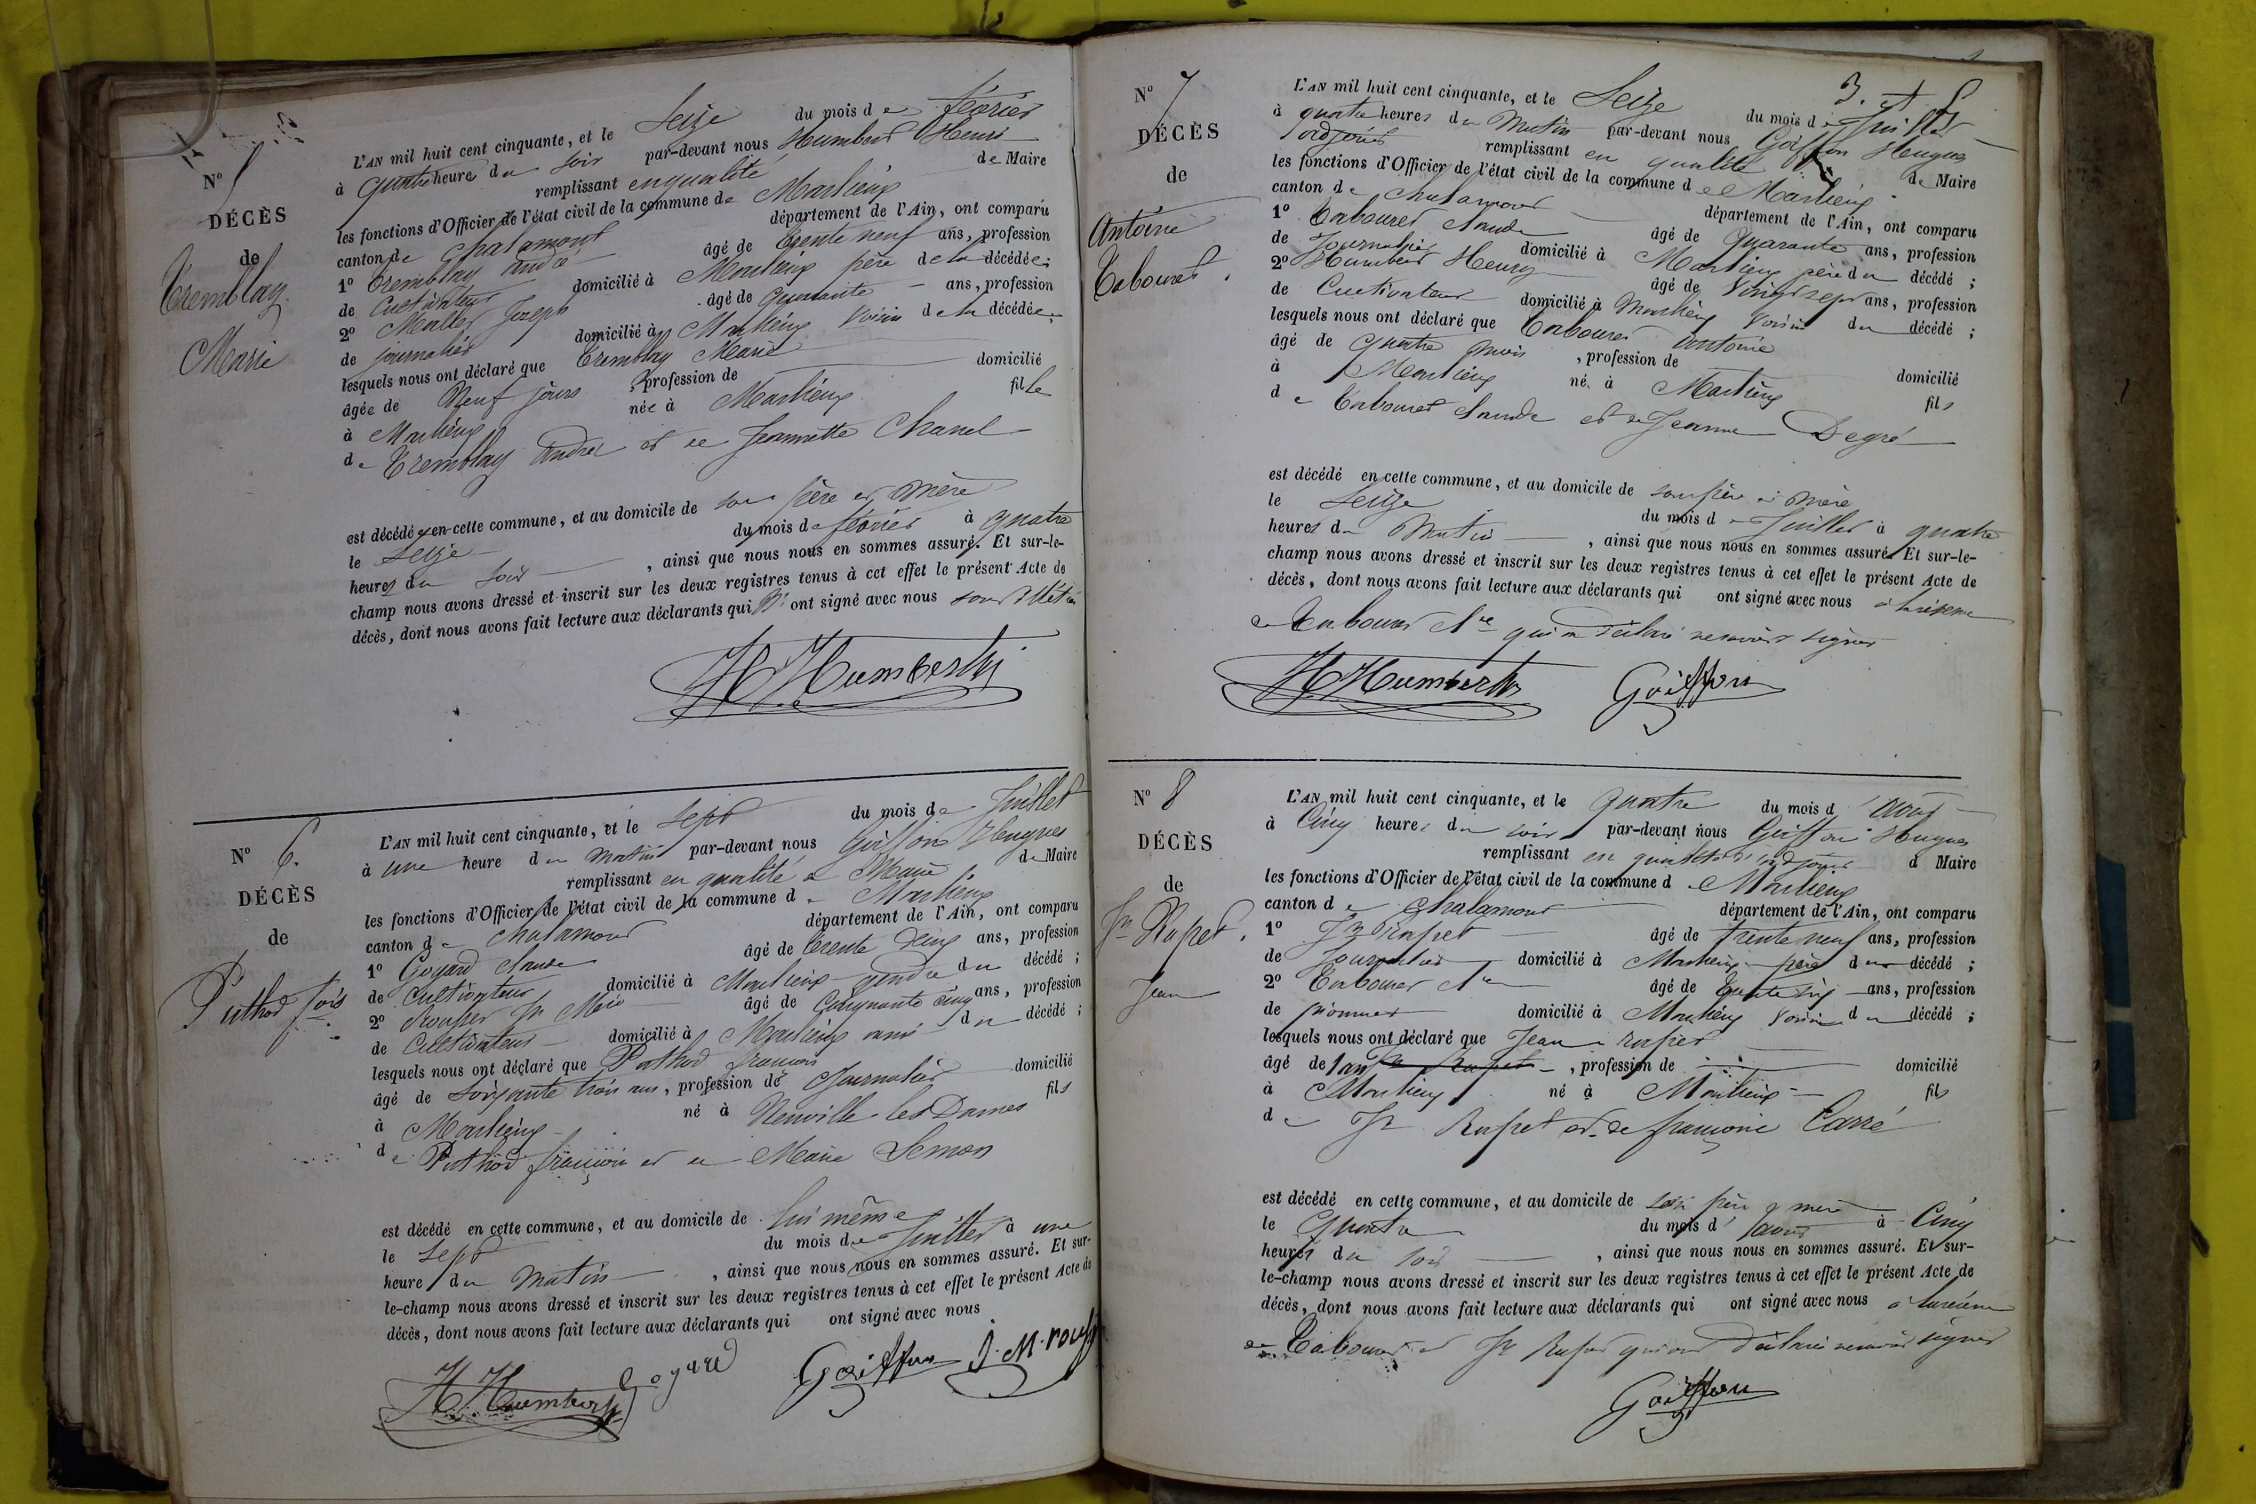 N° 5
DÉCÈS
de
Tremblay
Marie
L'AN mil huit cent cinquante, et le Seize du mois de février
à quatre heure du soir par-devant nous Humbert Henri
remplissant en qualité de Maire
les fonctions d'Officier de l'état civil de la commune de Marlieux
canton de Chalamont département de l'Ain, ont comparu
1° Tremblay andré âgé de trente neuf ans, profession
de Cultivateur domicilié à Marlieux père de la décédée;
2° Joseph âgé de quarante ans, profession
de journalier domicilié à Marlieux voisin de la décédée;
lesquels nous ont déclaré que Tremblay Marie
âgée de Neuf jours, profession de domicilié
à Marlieux née à Marlieux fille
de Tremblay andré et de Jeannette Chanel
est décédée en cette commune, et au domicile de son père et mère
le Seize du mois de février à quatre
heures du soir, ainsi que nous nous en sommes assuré. Et sur-le-
champ nous avons dressé et inscrit sur les deux registres tenus à cet effet le présent Acte de
décès, dont nous avons fait lecture aux déclarants qui n' ont signé avec nous
H Humbert
N° 6.
DÉCÈS
de
Puthod fois
L'AN mil huit cent cinquante, et le sept du mois de Juillet
à une heure du matin par-devant nous Goiffon Hugues
remplissant en qualité de Maire de Maire
les fonctions d'Officier de l'état civil de la commune de Marlieux
canton de Chalamont département de l'Ain, ont comparu
1° Goyard Claude âgé de trente deux ans, profession
de cultivateur domicilié à Marlieux gendre du décédé;
2° Jn Mie âgé de Cinquante cinq ans, profession
de Cultivateur domicilié à Marlieux ami du décédé;
lesquels nous ont déclaré que Puthod françois
âgé de Soixante trois ans, profession de Journalier domicilié
à Marlieux né à Neuville les Dames fils
de Puthod françois et de Marie
est décédé en cette commune, et au domicile de lui même
le sept du mois de Juillet à une
heure du matin, ainsi que nous nous en sommes assuré. Et sur-
le-champ nous avons dressé et inscrit sur les deux registres tenus à cet effet le présent Acte de
décès, dont nous avons fait lecture aux déclarants qui ont signé avec nous
H Humbert Goyard Goiffon J. M.
N° 7
DÉCÈS
de
Antoine
Tabouret
L'AN mil huit cent cinquante, et le Seize du mois de Juillet
à quatre heures du Matin par-devant nous Goiffon Hugues
adjoint remplissant en qualité de Maire
les fonctions d'Officier de l'état civil de la commune de Marlieux
canton de Chalamont département de l'Ain, ont comparu
1° Tabouret Claude âgé de Quarante ans, profession
de Journalier domicilié à Marlieux père du décédé;
2° Humbert Henry âgé de Vingt sept ans, profession
de Cultivateur domicilié à Marlieux voisin du décédé;
lesquels nous ont déclaré que Tabouret antoine
âgé de quatre mois, profession de domicilié
à Marlieux né à Marlieux fils
de Tabouret Claude et de Jeanne Degré
est décédé en cette commune, et au domicile de son père et mère
le Seize du mois de Juillet à quatre
heures du Matin, ainsi que nous nous en sommes assuré. Et sur-le-
champ nous avons dressé et inscrit sur les deux registres tenus à cet effet le présent Acte de
décès, dont nous avons fait lecture aux déclarants qui ont signé avec nous à la réserve
de Tabouret Cde qui a déclaré ne savoir signer
H Humbert Goiffon
N° 8
DÉCÈS
de
Jn Rapet
Jean
L'AN mil huit cent cinquante, et le quatre du mois d'aout
à Cinq heures du soir par-devant nous Goiffon Hugues
remplissant en qualité d'adjoint d Maire
les fonctions d'Officier de l'état civil de la commune de Marlieux
canton de Chalamont département de l'Ain, ont comparu
1° Jn Rapet âgé de trente neuf ans, profession
de Journalier domicilié à Marlieux père du décédé;
2° Tabouret Cde âgé de trente six ans, profession
de domicilié à Marlieux voisin du décédé;
lesquels nous ont déclaré que Jean rapet
âgé de 1 an, profession de domicilié
à Marlieux né à Marlieux fils
de Jn Rapet et de françoise Carré
est décédé en cette commune, et au domicile de son père & mère
le Quatre du mois d'aout à Cinq
heures du soir, ainsi que nous nous en sommes assuré. Et sur-
le-champ nous avons dressé et inscrit sur les deux registres tenus à cet effet le présent Acte de
décès, dont nous avons fait lecture aux déclarants qui ont signé avec nous à la réserve
de Tabouret et Jn Rapet qui ont déclaré ne savoir signer
Goiffon